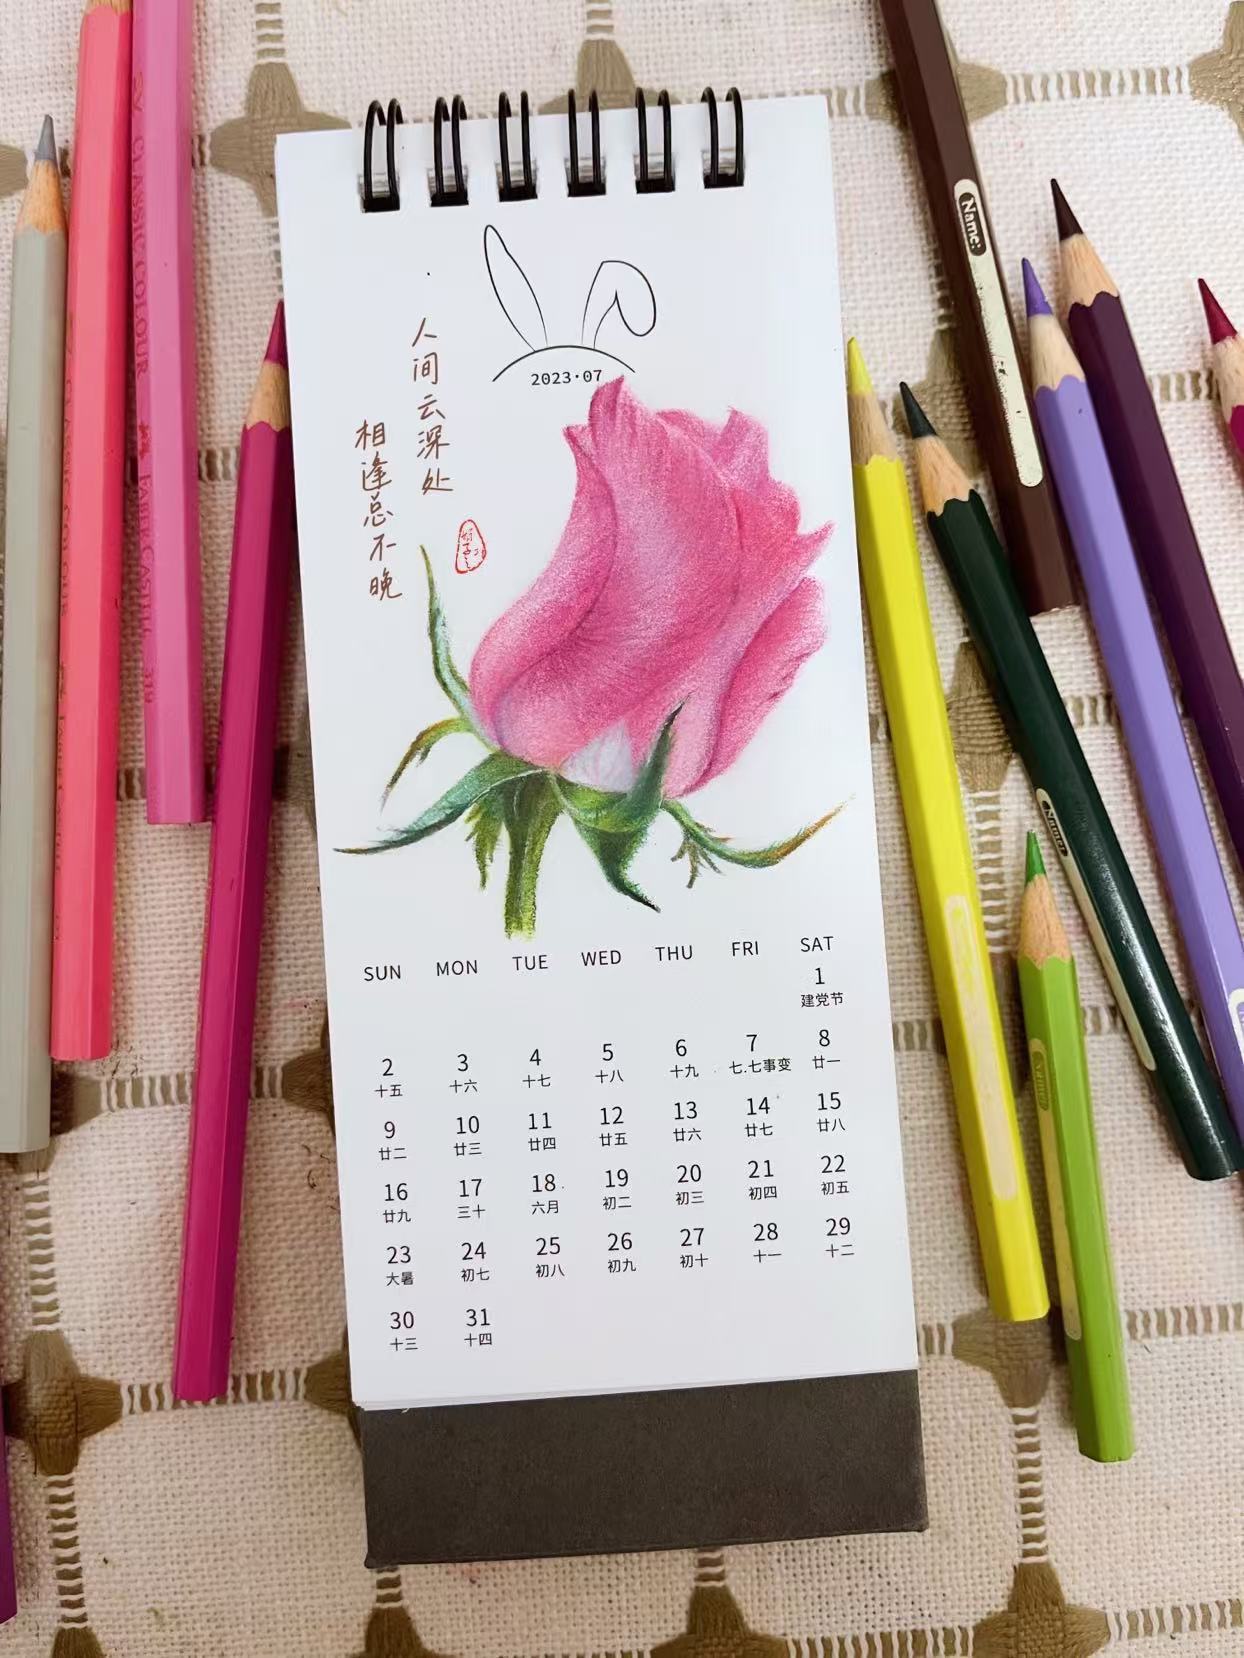 人间云深处
相逢总不晚
2023·07
SUN MON TUE WED THU FRI SAT
1
建党节
2 3 4 5 6 7 8
十五 十六 十七 十八 十九 七.七事变 廿一
9 10 11 12 13 14 15
廿二 廿三 廿四 廿五 廿六 廿七 廿八
16 17 18 19 20 21 22
廿九 三十 六月 初二 初三 初四 初五
23 24 25 26 27 28 29
大暑 初七 初八 初九 初十 十一 十二
30 31
十三 十四
CLASSIC COLOUR FABER-CASTELL 319
CLASSIC COLOUR
Name:
Name: